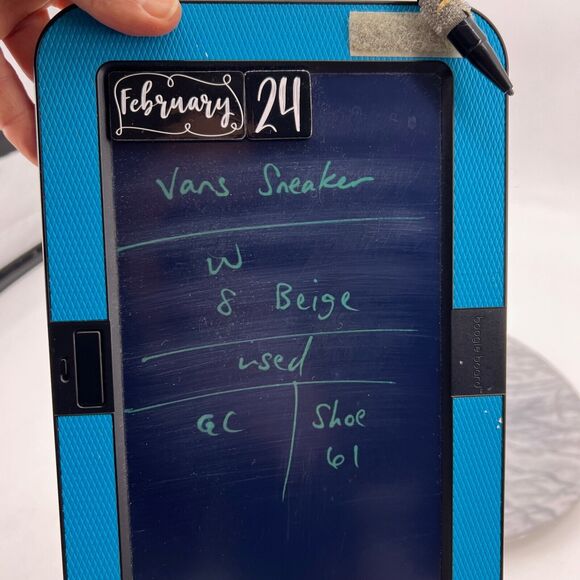 February 24
Vans Sneaker
W
8 Beige
used
GC
Shoe
61
boogie board